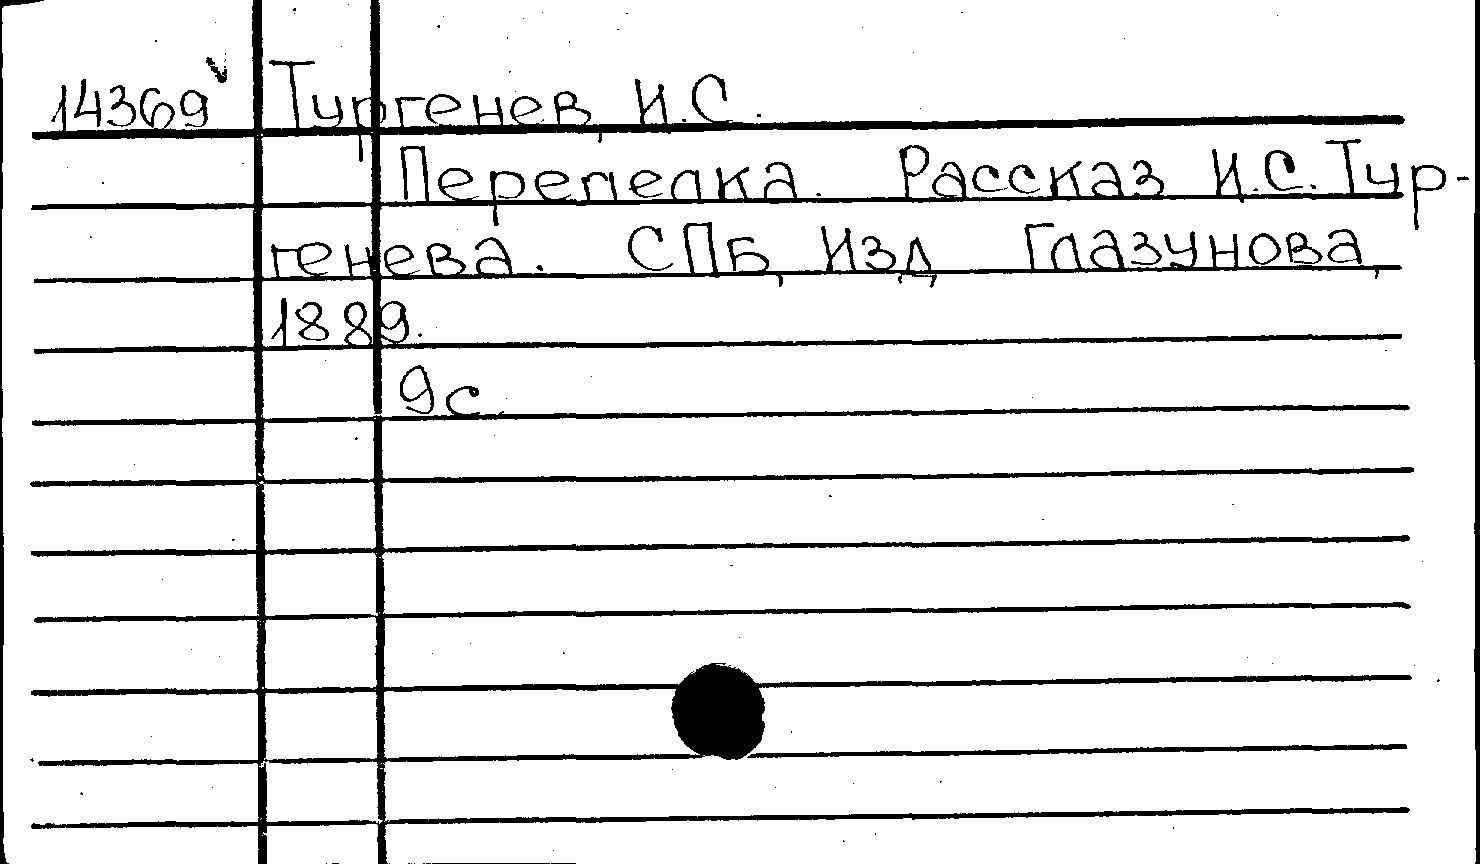 14369 v Тургенев, И.С.
Перепелка. Рассказ И.С. Тур-
генева. СПБ, Изд. Глазунова,
1889.
9с.